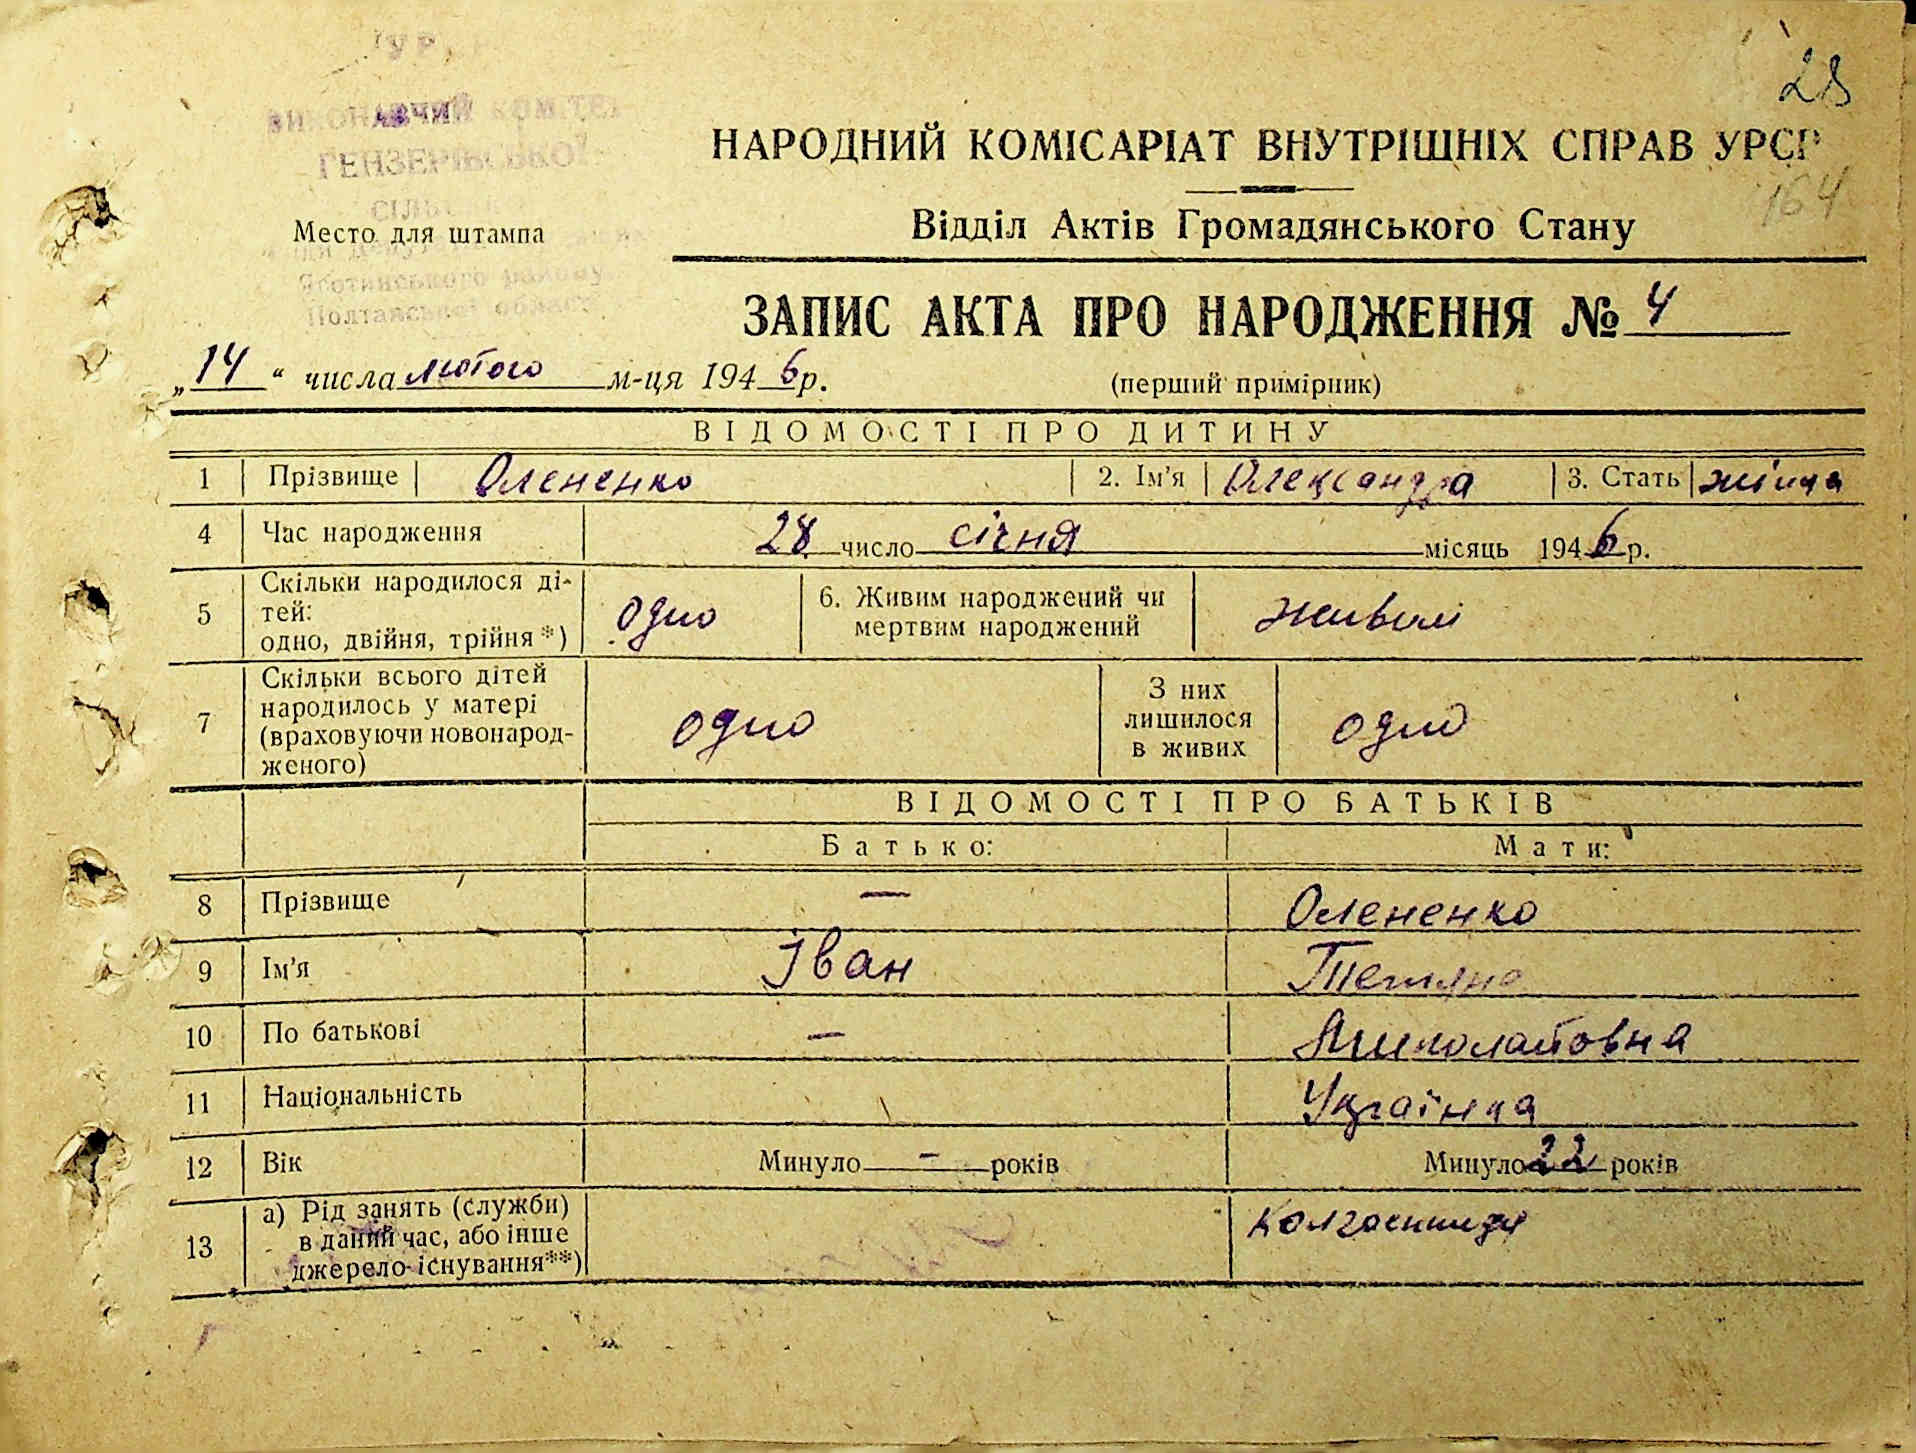 28
УР
ВИКОНАВЧИЙ КОМІТЕТ
ГЕНЗЕРІВСЬКОЇ
НАРОДНИЙ КОМІСАРІАТ ВНУТРІШНІХ СПРАВ УРСР
164
Место для штампа
Відділ Актів Громадянського Стану
Яготинського району
Полтавської області
ЗАПИС АКТА ПРО НАРОДЖЕННЯ № 4
„14“ числа лютого м-ця 1946 р.
(перший примірник)
ВІДОМОСТІ ПРО ДИТИНУ
1 Прізвище Олененко 2. Ім'я Олександра 3. Стать жіноча
4 Час народження 28 число січня місяць 1946 р.
5 Скільки народилося ді-
тей:
одно, двійня, трійня*) одно 6. Живим народжений чи
мертвим народжений живим
7 Скільки всього дітей
народилось у матері
(враховуючи новонарод-
женого) одно З них
лишилося
в живих одно
ВІДОМОСТІ ПРО БАТЬКІВ
Батько: Мати:
8 Прізвище — Олененко
9 Ім'я Іван Тетяна
10 По батькові — Миколаївна
11 Національність Українка
12 Вік Минуло - років Минуло 22 років
13 а) Рід занять (служби)
в даний час, або інше
джерело існування**) Колгоспниця